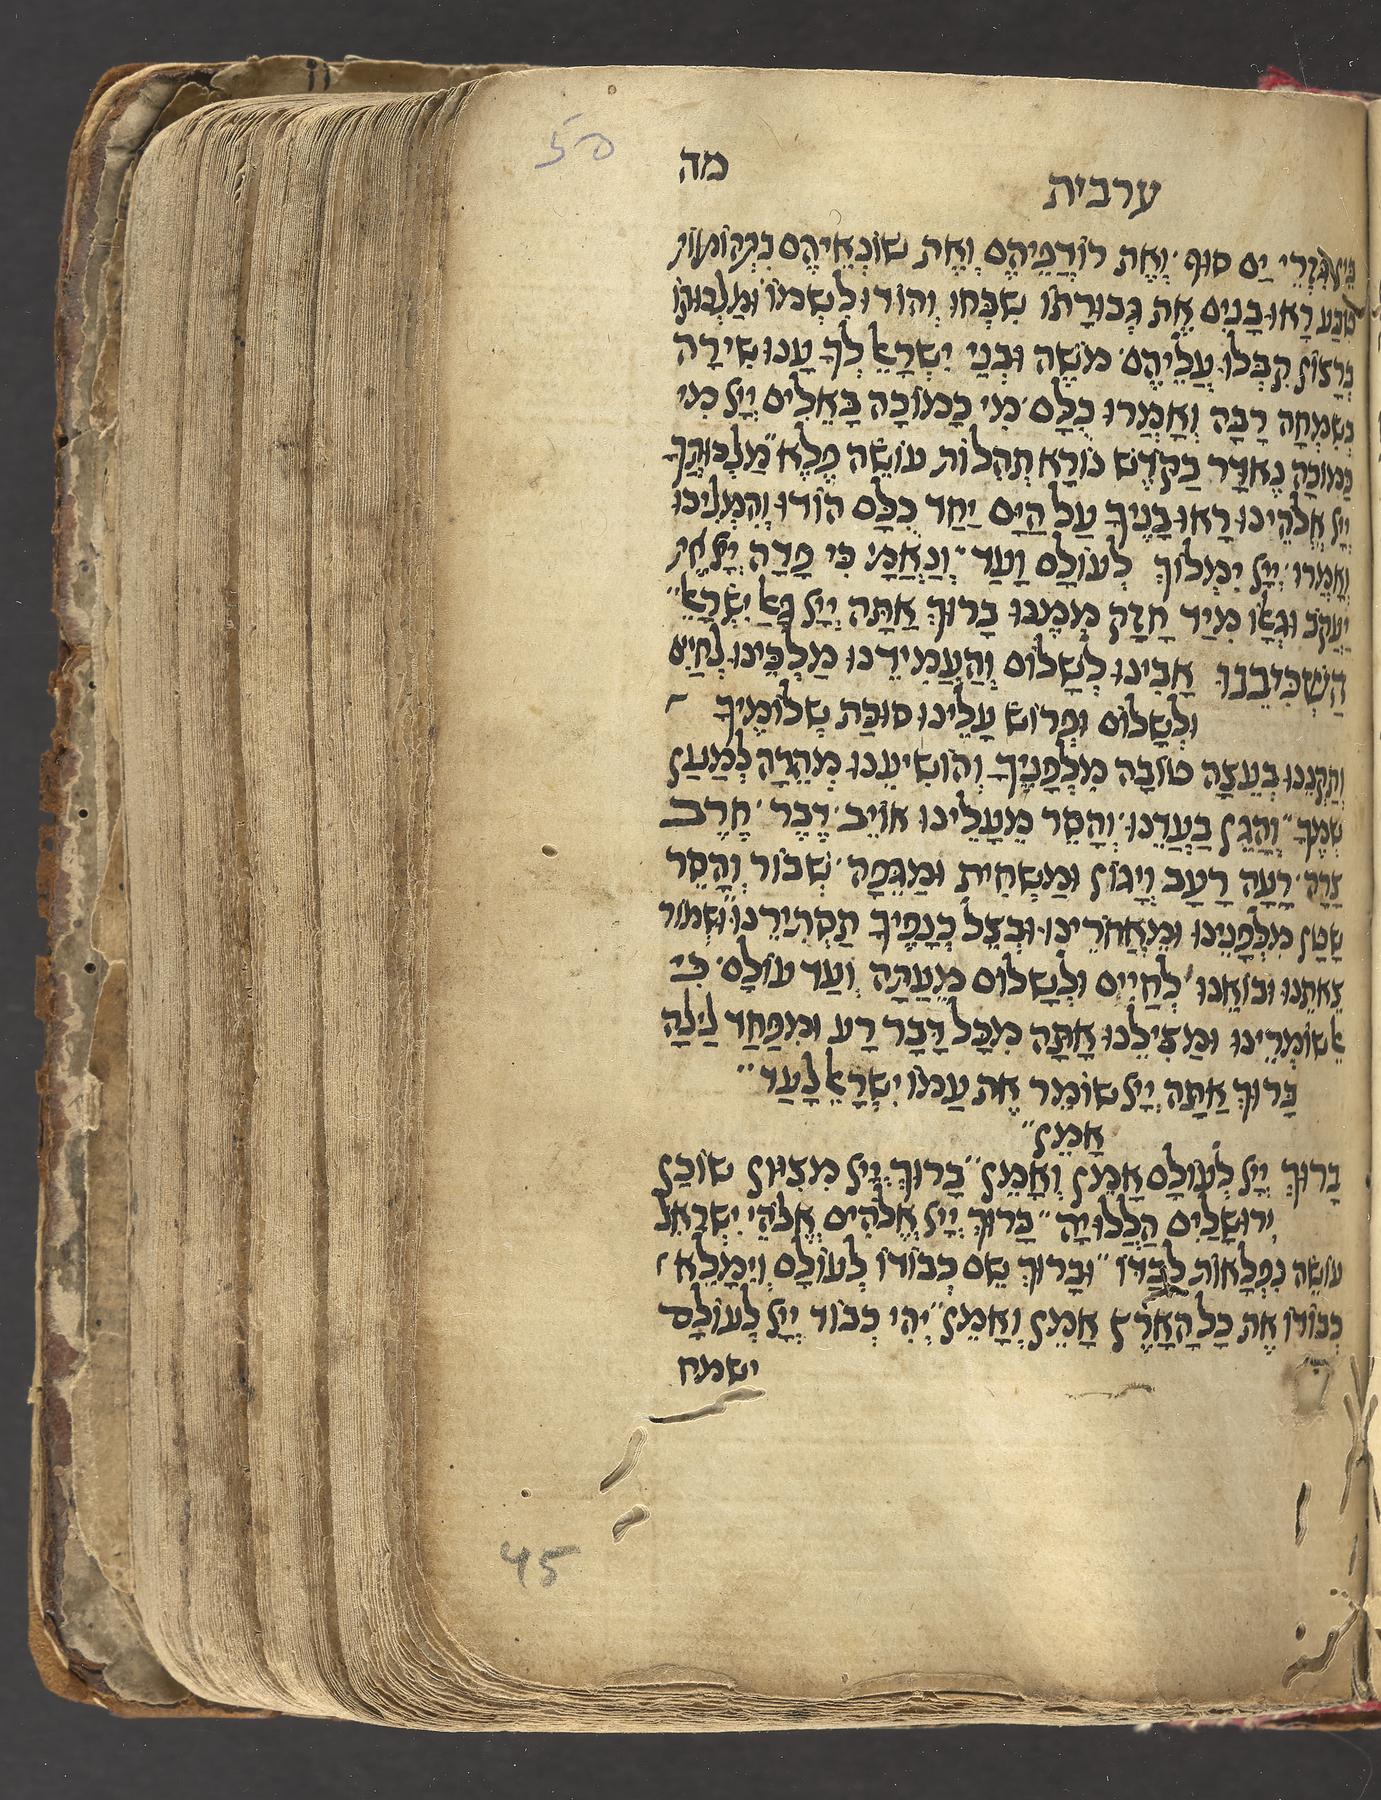 50
מה
ערבית
בֵּין גִּזְרֵי יַם סוּף וְאֶת רוֹדְפֵיהֶם וְאֶת שׂוֹנְאֵיהֶם בִּתְהוֹמוֹת
טִבַּע רָאוּ בָנִים אֶת גְּבוּרָתוֹ שִׁבְּחוּ וְהוֹדוּ לִשְׁמוֹ וּמַלְכוּתוֹ
בְּרָצוֹן קִבְּלוּ עֲלֵיהֶם מֹשֶׁה וּבְנֵי יִשְׂרָאֵל לְךָ עָנוּ שִׁירָה
בְּשִׂמְחָה רַבָּה וְאָמְרוּ כֻלָּם מִי כָמוֹכָה בָּאֵלִים יְיָ מִי
כָּמוֹכָה נֶאְדָּר בַּקֹּדֶשׁ נוֹרָא תְהִלּוֹת עוֹשֵׂה פֶלֶא מַלְכוּתְךָ
יְיָ אֱלֹהֵינוּ רָאוּ בָנֶיךָ עַל הַיָּם יַחַד כֻּלָּם הוֹדוּ וְהִמְלִיכוּ
וְאָמְרוּ יְיָ יִמְלוֹךְ לְעוֹלָם וָעֶד וְנֶאֱמַ׳ כִּי פָדָה יְיָ אֶת
יַעֲקֹב וּגְאָלוֹ מִיַּד חָזָק מִמֶּנּוּ בָּרוּךְ אַתָּה יְיָ גָּאַל יִשְׂרָאֵל
הַשְׁכִּיבֵנוּ אָבִינוּ לְשָׁלוֹם וְהַעֲמִידֵנוּ מַלְכֵּינוּ לְחַיִּים
וּלְשָׁלוֹם וּפְרוֹשׂ עָלֵינוּ סוּכַּת שְׁלוֹמֶיךָ
וְתַקְּנֵנוּ בְּעֵצָה טוֹבָה מִלְּפָנֶיךָ וְהוֹשִׁיעֵנוּ מְהֵרָה לְמַעַן
שְׁמֶךָ וְהָגֵן בַּעֲדֵנוּ וְהָסֵר מֵעָלֵינוּ אוֹיֵב דֶּבֶר חֶרֶב
צָרָה רָעָה רָעָב וְיָגוֹן וּמַשְׁחִית וּמַגֵּפָה שְׁבוֹר וְהָסֵר
שָׂטָן מִלְּפָנֵינוּ וּמֵאַחֲרֵינוּ וּבְצֵל כְּנָפֶיךָ תַּסְתִּירֵנוּ וּשְׁמוֹר
צֵאתֵנוּ וּבוֹאֵנוּ לְחַיִּים וּלְשָׁלוֹם מֵעַתָּה וְעַד עוֹלָם כִּי
אֵל שׁוֹמְרֵינוּ וּמַצִּילֵנוּ אָתָּה מִכָּל דָּבָר רָע וּמִפַּחַד לַיְלָה
בָּרוּךְ אַתָּה יְיָ שׁוֹמֵר אֶת עַמּוֹ יִשְׂרָאֵל לָעַד
אָמֵן
בָּרוּךְ יְיָ לְעוֹלָם אָמֵן וְאָמֵן בָּרוּךְ יְיָ מִצִּיּוֹן שׁוֹכֵן
יְרוּשָׁלַיִם הַלְלוּיָהּ בָּרוּךְ יְיָ אֱלֹהִים אֱלֹהֵי יִשְׂרָאֵל
עוֹשֵׂה נִפְלָאוֹת לְבַדּוֹ וּבָרוּךְ שֵׁם כְּבוֹדוֹ לְעוֹלָם וְיִמָּלֵא
כְבוֹדוֹ אֶת כָּל הָאָרֶץ אָמֵן וְאָמֵן יְהִי כְבוֹד יְיָ לְעוֹלָם
ישמח
45